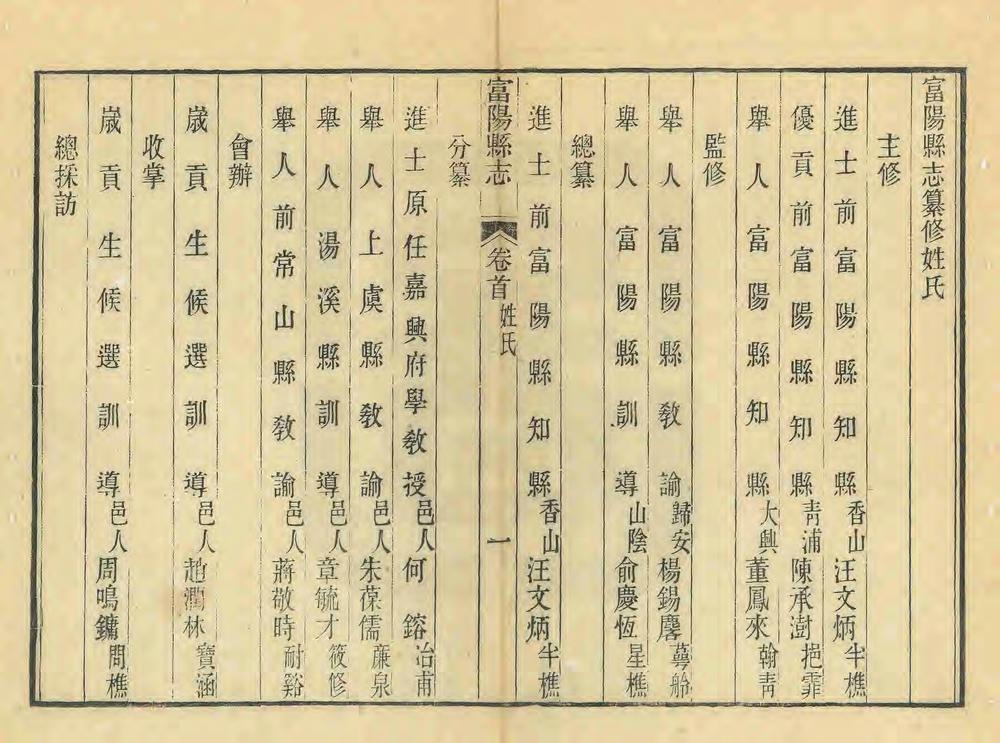 富陽縣志纂修姓氏
主修
進士前富陽縣知縣香山汪文炳半樵
優貢前富陽縣知縣青浦陳承澍挹霏
舉人富陽縣知縣大興董鳳來翰青
監修
舉人富陽縣教諭歸安楊錫麐蕚舲
舉人富陽縣訓導山陰俞慶恆星樵
總纂
進士前富陽縣知縣香山汪文炳半樵
富陽縣志 卷首 姓氏 一
分纂
進士原任嘉興府學教授邑人何鎔冶甫
舉人上虞縣教諭邑人朱葆儒亷泉
舉人湯溪縣訓導邑人章毓才筱修
舉人前常山縣教諭邑人蔣敬時耐谿
會辦
歲貢生候選訓導邑人趙潤林寶涵
收掌
歲貢生候選訓導邑人周鳴鏞問樵
總採訪